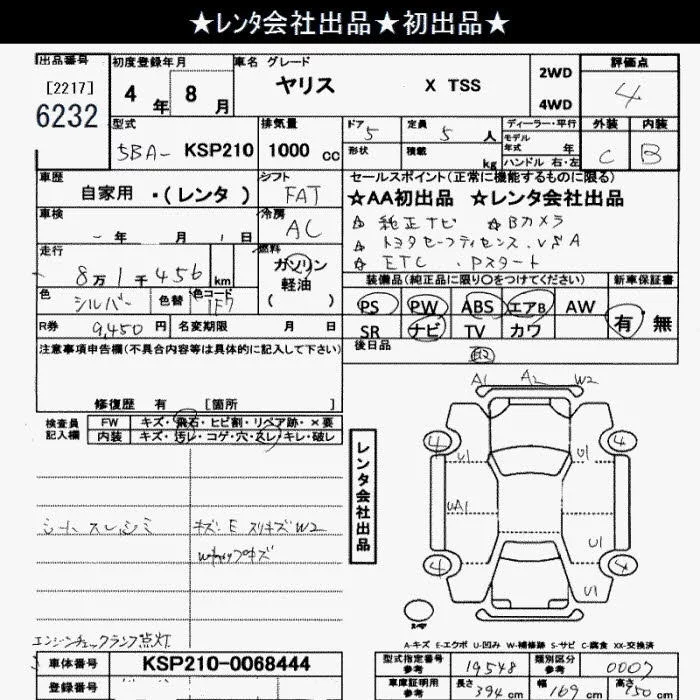 ★レンタ会社出品★初出品★
出品番号 初度登録年月 車名 グレード 評価点
[2217] 6232 4年 8月 ヤリス X TSS 2WD 4WD 4
型式 排気量 ドア 5 定員 5人 ディーラー・平行 外装 内装
5BA- KSP210 1000 cc 形状 積載 kg モデル年式 年 C B
ハンドル 右・左
車歴 シフト セールスポイント(正常に機能するものに限る)
自家用 ・(レンタ) FAT ☆AA初出品 ☆レンタ会社出品
車検 年 月 日 冷房 AC ☆ 純正ナビ ☆ Bカメラ
☆ トヨタセーフティセンス.VSA
走行 燃料 ☆ ETC .Pスタート
8万1千456 km ガソリン 軽油 ( ) 装備品(純正品に限り○をつけてください) 新車保証書
色 シルバー 色替 色コード 1F7 PS PW ABS エアB AW 有・無
R券 9,450円 名変期限 月 日 SR ナビ TV カワ
注意事項申告欄(不具合内容等は具体的に記入して下さい) 後日品
修復歴 有 [箇所 ] A1 A2 W2
検査員記入欄 FW キズ・飛石・ヒビ割・リペア跡・×要
内装 キズ・汚レ・コゲ・穴・スレ・キレ・破レ
レンタ会社出品
4 4
U1 U1
UA1
シート スレ シミ キズ:E スリキズW2
U1
4 4
U1
エンジンチェックランプ点灯
A-キズ E-エクボ U-凹み W-補修跡 S-サビ C-腐食 XX-交換済
車体番号 KSP210-0068444 型式指定番号 参考 19548 類別区分 参考 0007
登録番号 車庫証明用 参考 長さ 394 cm 幅 169 cm 高さ 150 cm